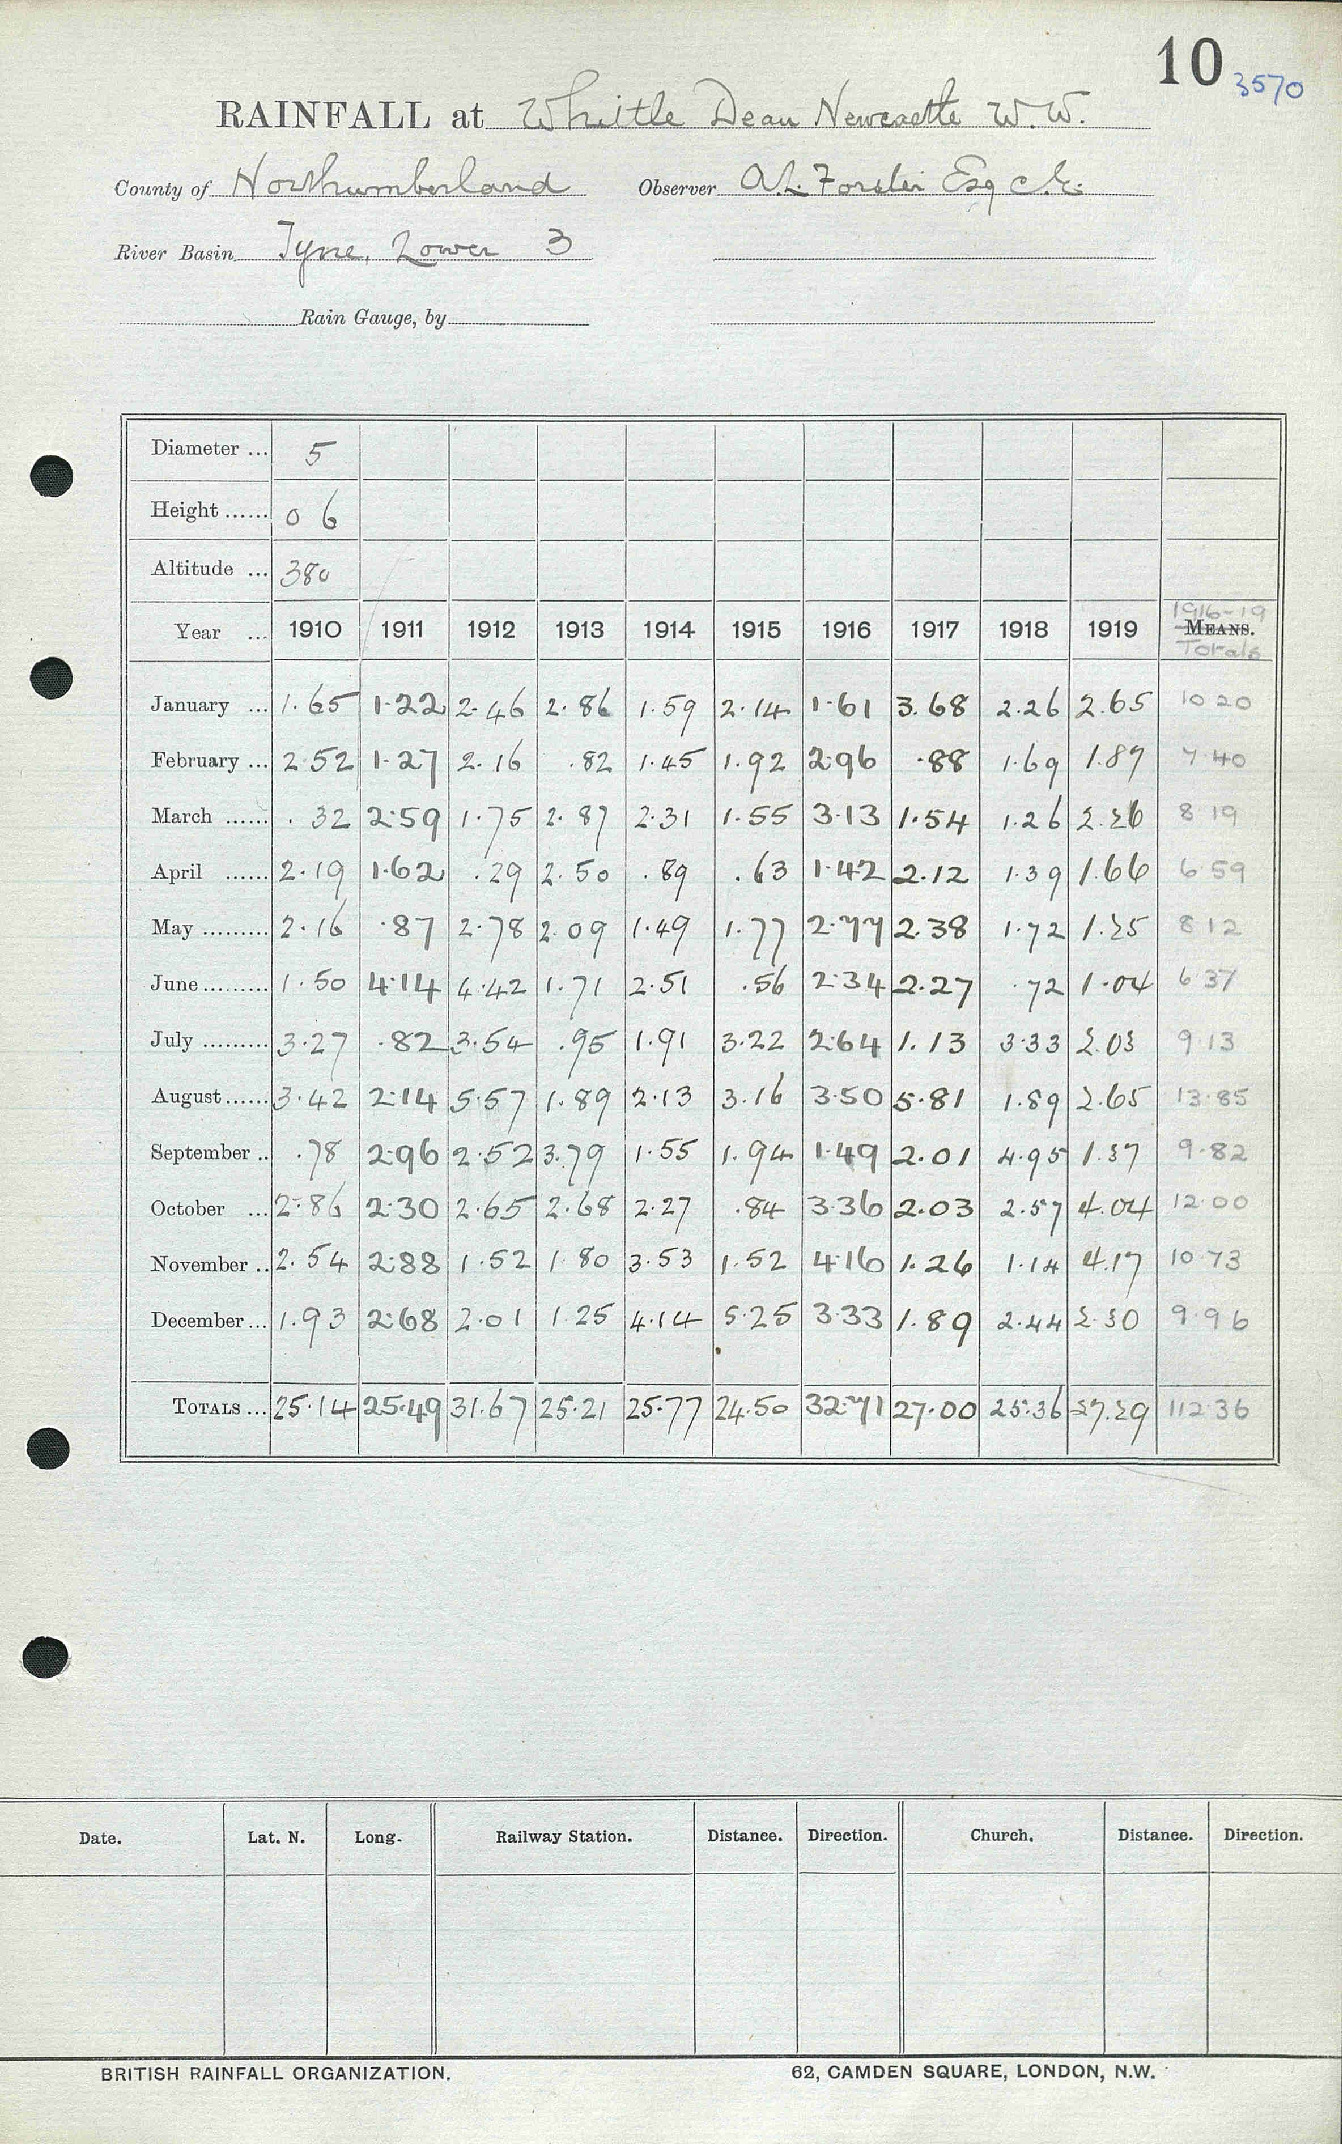 10
3570
RAINFALL at Whittle Dean Newcastle W.W.
County of Northumberland Observer A.L. Forster Esq C.E.
River Basin Tyne, Lower 3
Rain Gauge, by
Diameter ... 5
Height ...... 0 6
Altitude ... 380
1916-19
Year ... 1910 1911 1912 1913 1914 1915 1916 1917 1918 1919 MEANS.
Totals
January ... 1.65 1.22 2.46 2.86 1.59 2.14 1.61 3.68 2.26 2.65 10 20
February ... 2.52 1.27 2.16 .82 1.45 1.92 2.96 .88 1.69 1.87 7.40
March ...... .32 2.59 1.75 2.87 2.31 1.55 3.13 1.54 1.26 2.26 8 19
April ...... 2.19 1.62 .29 2.50 .89 .63 1.42 2.12 1.39 1.66 6.59
May ......... 2.16 .87 2.78 2.09 1.49 1.77 2.77 2.38 1.72 1.25 8 12
June ......... 1.50 4.14 4.42 1.71 2.51 .56 2.34 2.27 .72 1.04 6 37
July ......... 3.27 .82 3.54 .95 1.91 3.22 2.64 1.13 3.33 2.03 9.13
August ...... 3.42 2.14 5.57 1.89 2.13 3.16 3.50 5.81 1.89 2.65 13.85
September .. .78 2.96 2.52 3.79 1.55 1.94 1.49 2.01 4.95 1.37 9.82
October ... 2.86 2.30 2.65 2.68 2.27 .84 3.36 2.03 2.57 4.04 12.00
November .. 2.54 2.88 1.52 1.80 3.53 1.52 4.16 1.26 1.14 4.17 10.73
December ... 1.93 2.68 2.01 1.25 4.14 5.25 3.33 1.89 2.44 2.30 9.96
TOTALS ... 25.14 25.49 31.67 25.21 25.77 24.50 32.71 27.00 25.36 27.29 112.36
Date. Lat. N. Long. Railway Station. Distance. Direction. Church. Distance. Direction.
BRITISH RAINFALL ORGANIZATION. 62, CAMDEN SQUARE, LONDON, N.W.